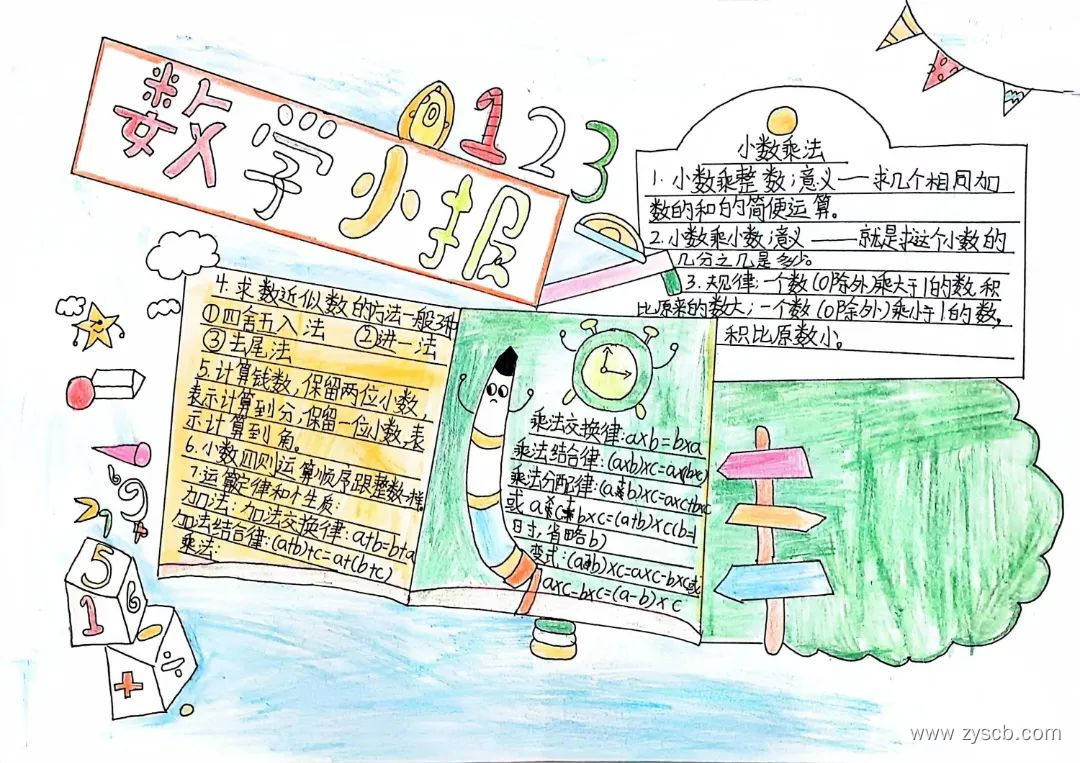 数学小报
0123
小数乘法
1. 小数乘整数;意义——求几个相同加
数的和的简便运算。
2. 小数乘小数;意义——就是求这个小数的
几分之几是多少。
3. 规律:一个数(0除外)乘大于1的数,积
比原来的数大;一个数(0除外)乘小于1的数,
积比原数小。
4. 求数近似数的方法一般3种
①四舍五入法 ②进一法
③去尾法
5. 计算钱数,保留两位小数,
表示计算到分;保留一位小数,表
示计算到角。
6. 小数四则运算顺序跟整数一样。
7. 运算定律和个生质:
加法:加法交换律:a+b=b+a
加法结合律:(a+b)+c=a+(b+c)
乘法:
乘法交换律:a×b=b×a
乘法结合律:(a×b)×c=a×(b×c)
乘法分配律:(a+b)×c=a×c+b×c
或a×c+b×c=(a+b)×c(b=1
时,省略b)
变式:(a-b)×c=a×c-b×c或
a×c-b×c=(a-b)×c
6
9
7
+
5
1 6
÷
+
www.zyscb.com